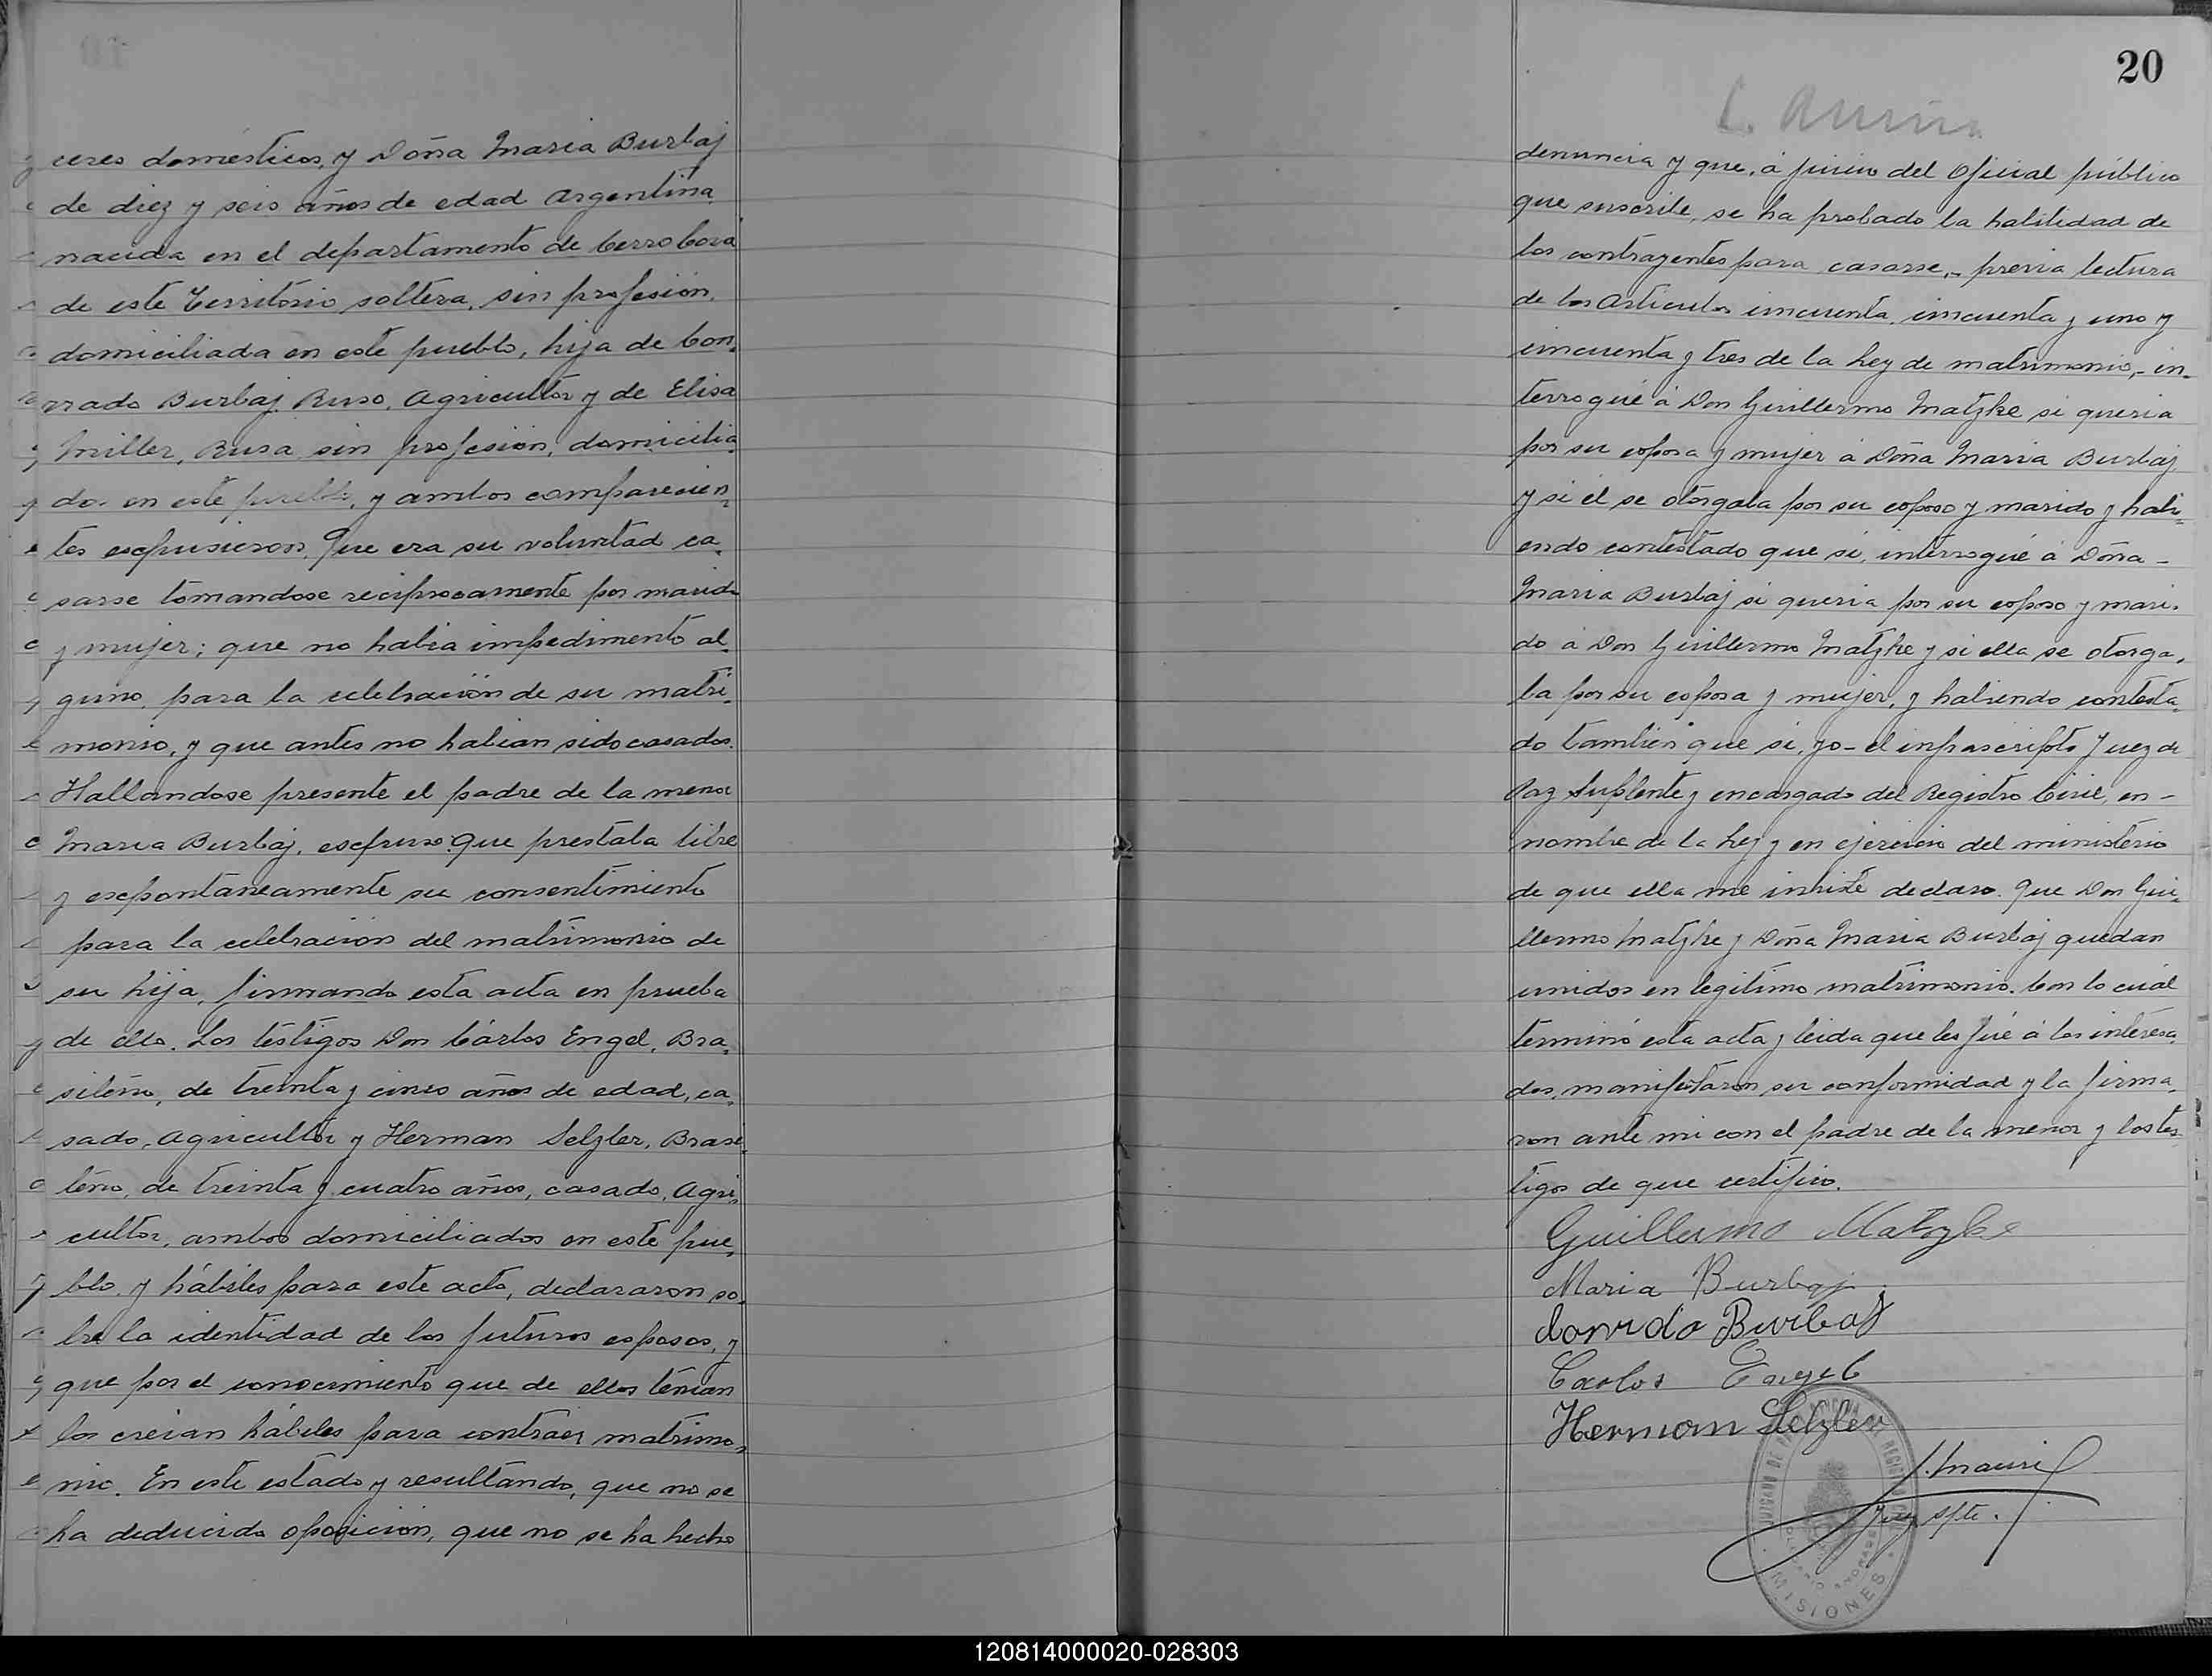 ceres domésticos, y Doña Maria Burbaj
de diez y seis años de edad Argentina,
nacida en el departamento de Cerro Corá
de este Território soltera, sin profesión,
domiciliada en este pueblo, hija de Con-
rrado Burbaj, Ruso, Agricultor y de Elisa
Miller, Rusa sin profesión, domicilia-
dos en este pueblo, y ambos comparecien-
tes escpusieron, Que era su voluntad ca-
sarse tomandose reciprocamente por marido
y mujer; que no habia impedimento al-
guno, para la celebración de su matri-
monio, y que antes no habian sido casados.
Hallandose presente el padre de la menor
Maria Burbaj, escpuso: Que prestaba libre
y escpontáneamente su consentimiento
para la celebración del matrimonio de
su hija, firmando esta acta en prueba
de ello. Los téstigos Don Cárlos Engel, Bra-
sileño, de treinta y cinco años de edad, ca-
sado, Agricultor y Herman Selzler, Brasi-
leño, de treinta y cuatro años, casado, Agri-
cultor, ambos domiciliados en este pue-
blo, y hábiles para este acto, declararon so-
bre la identidad de los futuros esposos, y
que por el conocimiento que de ellos tenian
los creian hábiles para contraer matrimo-
nio. En este estado y resultando, que no se
ha deducido oposición, que no se ha hecho
20
denuncia y que, á juicio del Oficial público
que suscribe, se ha probado la habilidad de
los contrayentes para casarse,- previa lectura
de los Articulos cincuenta, cincuenta y uno y
cincuenta y tres de la Ley de matrimonio,- in-
terrogué á Don Guillermo Matzke si queria
por su esposa y mujer á Doña Maria Burbaj
y si él se otorgaba por su esposo y marido y habi-
endo contestado que si, interrogué á Doña -
Maria Burbaj si queria por su esposo y mari-
do á Don Guillermo Matzke y si ella se otorga-
ba por su esposa y mujer, y habiendo contesta-
do tambien que si, yo - el infrascripto Juez de
Paz Suplente y encargado del Registro Civil, en -
nombre de la Ley y en ejercicio del ministerio
de que ella me inviste declaro. Que Don Gui-
llermo Matzke y Doña Maria Burbaj quedan
unidos en legitimo matrimonio. Con lo cuál
terminó esta acta y leida que les fué á los interesa-
dos, manifestaron su conformidad y la firma-
ron ante mi con el padre de la menor y los tes-
tigos de que certifico.
Guillermo Matzke
Maria Burbaj
Conrado Burbaj
Carlos Engel
Herman Selzler
Juez splte.
MISIONES
120814000020-028303